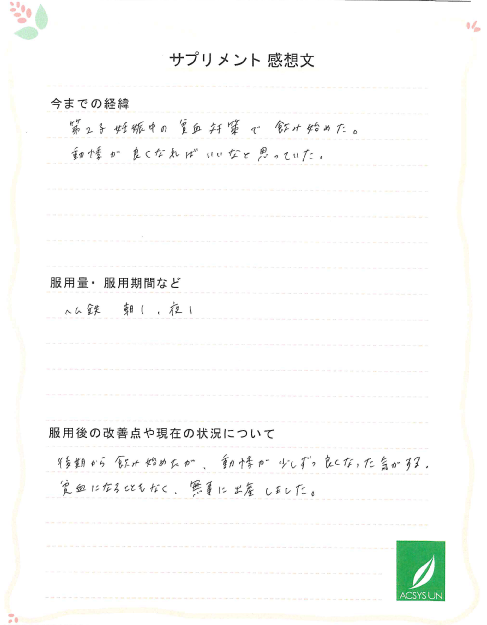 サプリメント 感想文
今までの経緯
第2子 妊娠中の 貧血 対策で 飲み始めた。
動悸が 良くなれば いいなと 思っていた。
服用量・服用期間など
ヘム鉄 朝1、夜1
服用後の改善点や現在の状況について
後期から 飲み始めたが、動悸が 少しずつ 良くなった 気がする。
貧血になることもなく、無事に出産しました。
ACSYSUN